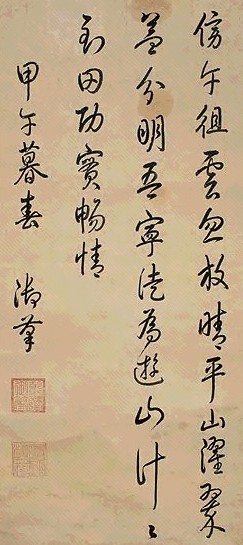 傍午徂雲忽放晴平山濯翠
益分明吾寧徒為遊山計〻
到田功實暢情
甲午暮春 御筆